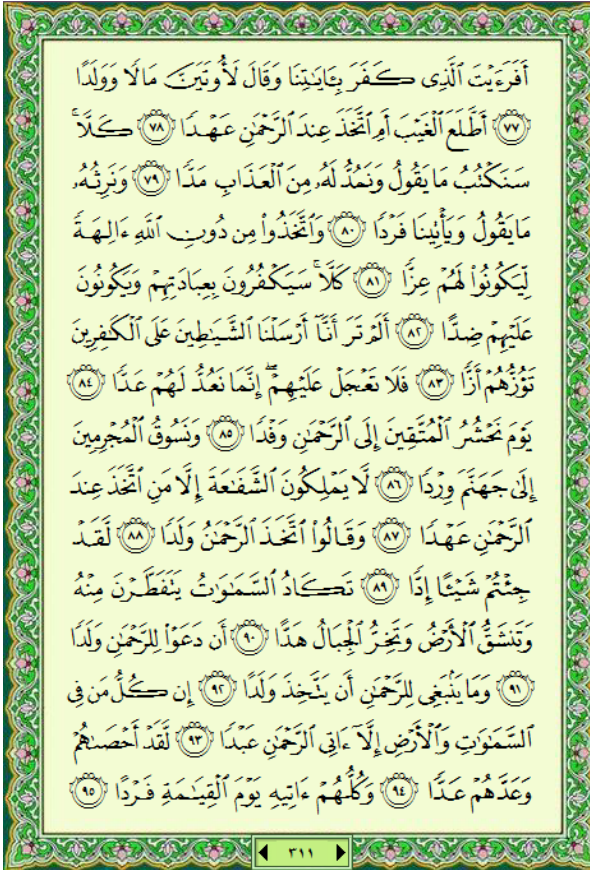 أَفَرَءَيۡتَ ٱلَّذِي كَفَرَ بِـَٔايَٰتِنَا وَقَالَ لَأُوتَيَنَّ مَالٗا وَوَلَدًا
٧٧ أَطَّلَعَ ٱلۡغَيۡبَ أَمِ ٱتَّخَذَ عِندَ ٱلرَّحۡمَٰنِ عَهۡدٗا ٧٨ كَلَّاۚ
سَنَكۡتُبُ مَا يَقُولُ وَنَمُدُّ لَهُۥ مِنَ ٱلۡعَذَابِ مَدّٗا ٧٩ وَنَرِثُهُۥ
مَا يَقُولُ وَيَأۡتِينَا فَرۡدٗا ٨٠ وَٱتَّخَذُواْ مِن دُونِ ٱللَّهِ ءَالِهَةٗ
لِّيَكُونُواْ لَهُمۡ عِزّٗا ٨١ كَلَّاۚ سَيَكۡفُرُونَ بِعِبَادَتِهِمۡ وَيَكُونُونَ
عَلَيۡهِمۡ ضِدًّا ٨٢ أَلَمۡ تَرَ أَنَّآ أَرۡسَلۡنَا ٱلشَّيَٰطِينَ عَلَى ٱلۡكَٰفِرِينَ
تَؤُزُّهُمۡ أَزّٗا ٨٣ فَلَا تَعۡجَلۡ عَلَيۡهِمۡۖ إِنَّمَا نَعُدُّ لَهُمۡ عَدّٗا ٨٤
يَوۡمَ نَحۡشُرُ ٱلۡمُتَّقِينَ إِلَى ٱلرَّحۡمَٰنِ وَفۡدٗا ٨٥ وَنَسُوقُ ٱلۡمُجۡرِمِينَ
إِلَىٰ جَهَنَّمَ وِرۡدٗا ٨٦ لَّا يَمۡلِكُونَ ٱلشَّفَٰعَةَ إِلَّا مَنِ ٱتَّخَذَ عِندَ
ٱلرَّحۡمَٰنِ عَهۡدٗا ٨٧ وَقَالُواْ ٱتَّخَذَ ٱلرَّحۡمَٰنُ وَلَدٗا ٨٨ لَّقَدۡ
جِئۡتُمۡ شَيۡـًٔا إِدّٗا ٨٩ تَكَادُ ٱلسَّمَٰوَٰتُ يَتَفَطَّرۡنَ مِنۡهُ
وَتَنشَقُّ ٱلۡأَرۡضُ وَتَخِرُّ ٱلۡجِبَالُ هَدًّا ٩٠ أَن دَعَوۡاْ لِلرَّحۡمَٰنِ وَلَدٗا
٩١ وَمَا يَنۢبَغِي لِلرَّحۡمَٰنِ أَن يَتَّخِذَ وَلَدًا ٩٢ إِن كُلُّ مَن فِي
ٱلسَّمَٰوَٰتِ وَٱلۡأَرۡضِ إِلَّآ ءَاتِي ٱلرَّحۡمَٰنِ عَبۡدٗا ٩٣ لَّقَدۡ أَحۡصَىٰهُمۡ
وَعَدَّهُمۡ عَدّٗا ٩٤ وَكُلُّهُمۡ ءَاتِيهِ يَوۡمَ ٱلۡقِيَٰمَةِ فَرۡدًا ٩٥
٣١١